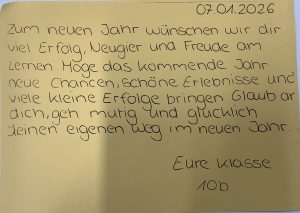 07.01.2026
Zum neuen Jahr wünschen wir dir
viel Erfolg, Neugier und Freude am
Lernen. Möge das kommende Jahr
neue Chancen, schöne Erlebnisse und
viele kleine Erfolge bringen. Glaub an
dich, geh mutig und glücklich
deinen eigenen Weg im neuen Jahr.
Eure Klasse
10b